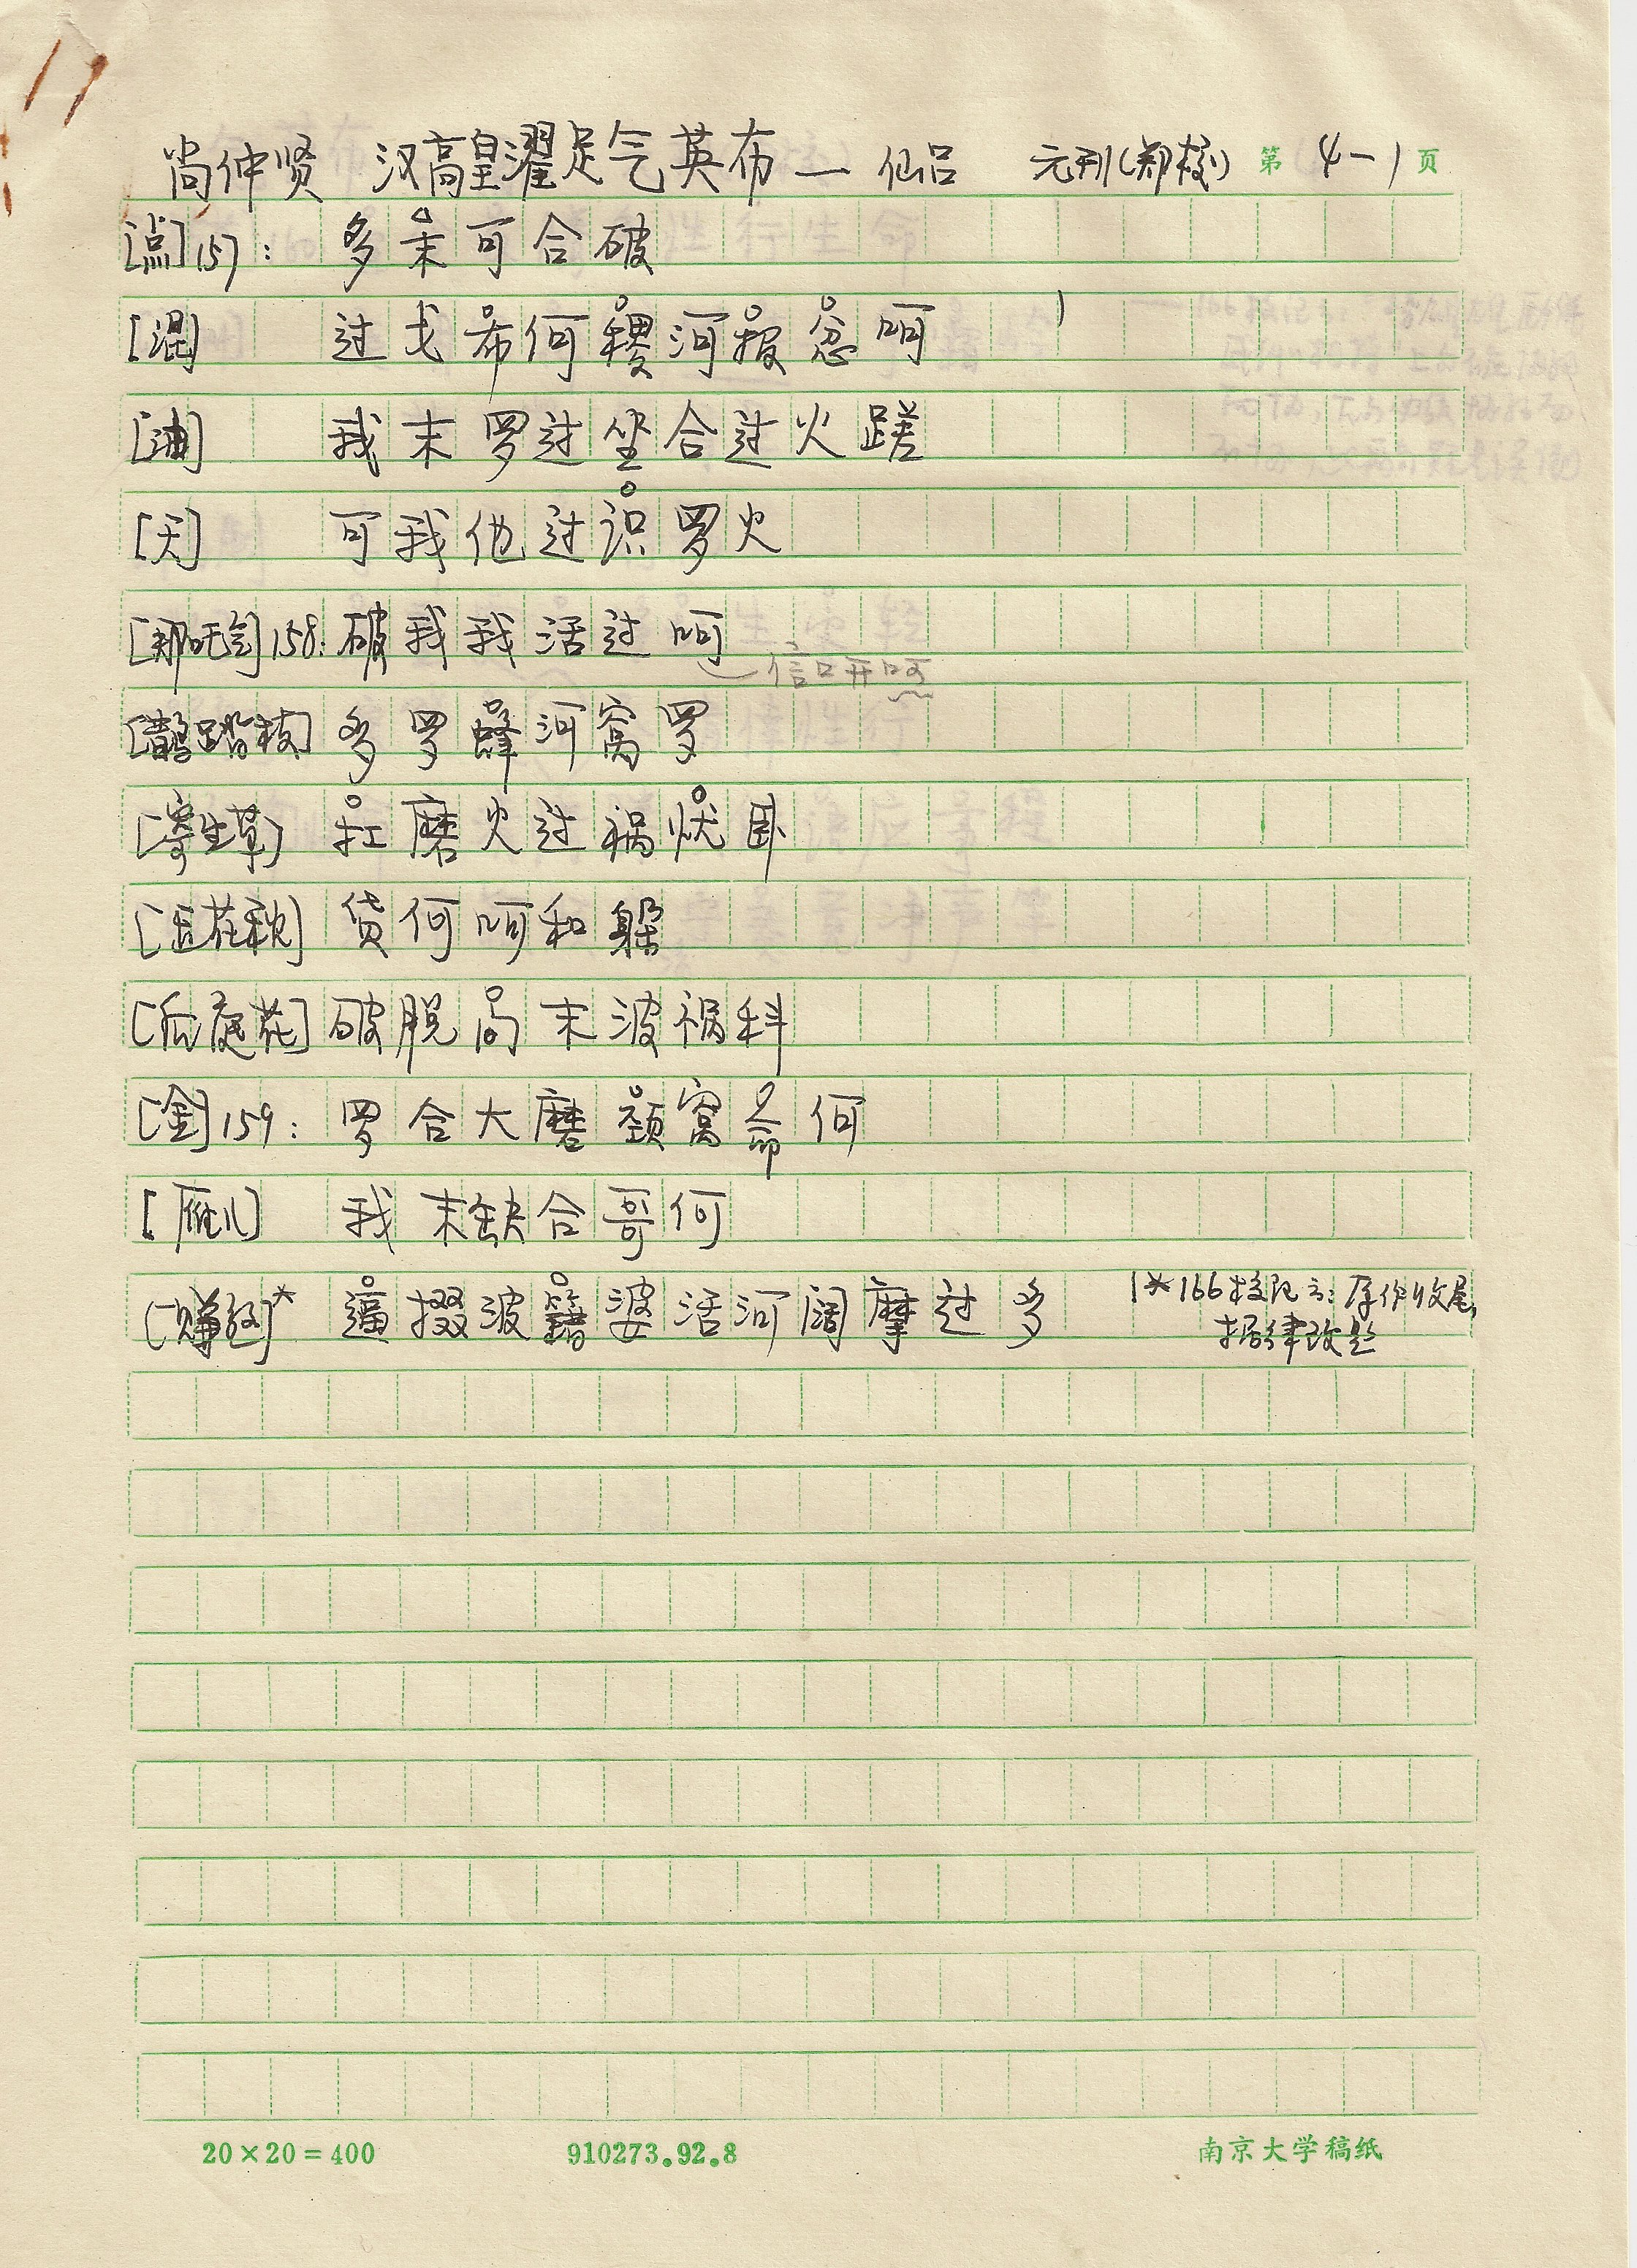 尚仲贤 汉高皇濯足气英布 一 仙吕 元刊(郑校) 第 4-1 页
[点]157: 多末可合破
[混] 过戈希何稷河报忽呵
[油] 我末罗过坐合过火蹉
[天] 可我他过识罗火
[那吒令]158: 破我我活过呵
信口开呵
[鹊踏枝] 多罗蜂河窝罗
[寄生草] 扛磨火过祸忧卧
[玉花秋] 货何呵和躲
[后庭花] 破脱局末波祸科
[金]159: 罗合大磨颏窝命何
[雁儿] 我末缺合哥何
[赚煞]* 逼掇波籍婆活河阔摩过多
*166校记云: 原作收尾,
据律改题
20×20=400 910273.92.8 南京大学稿纸